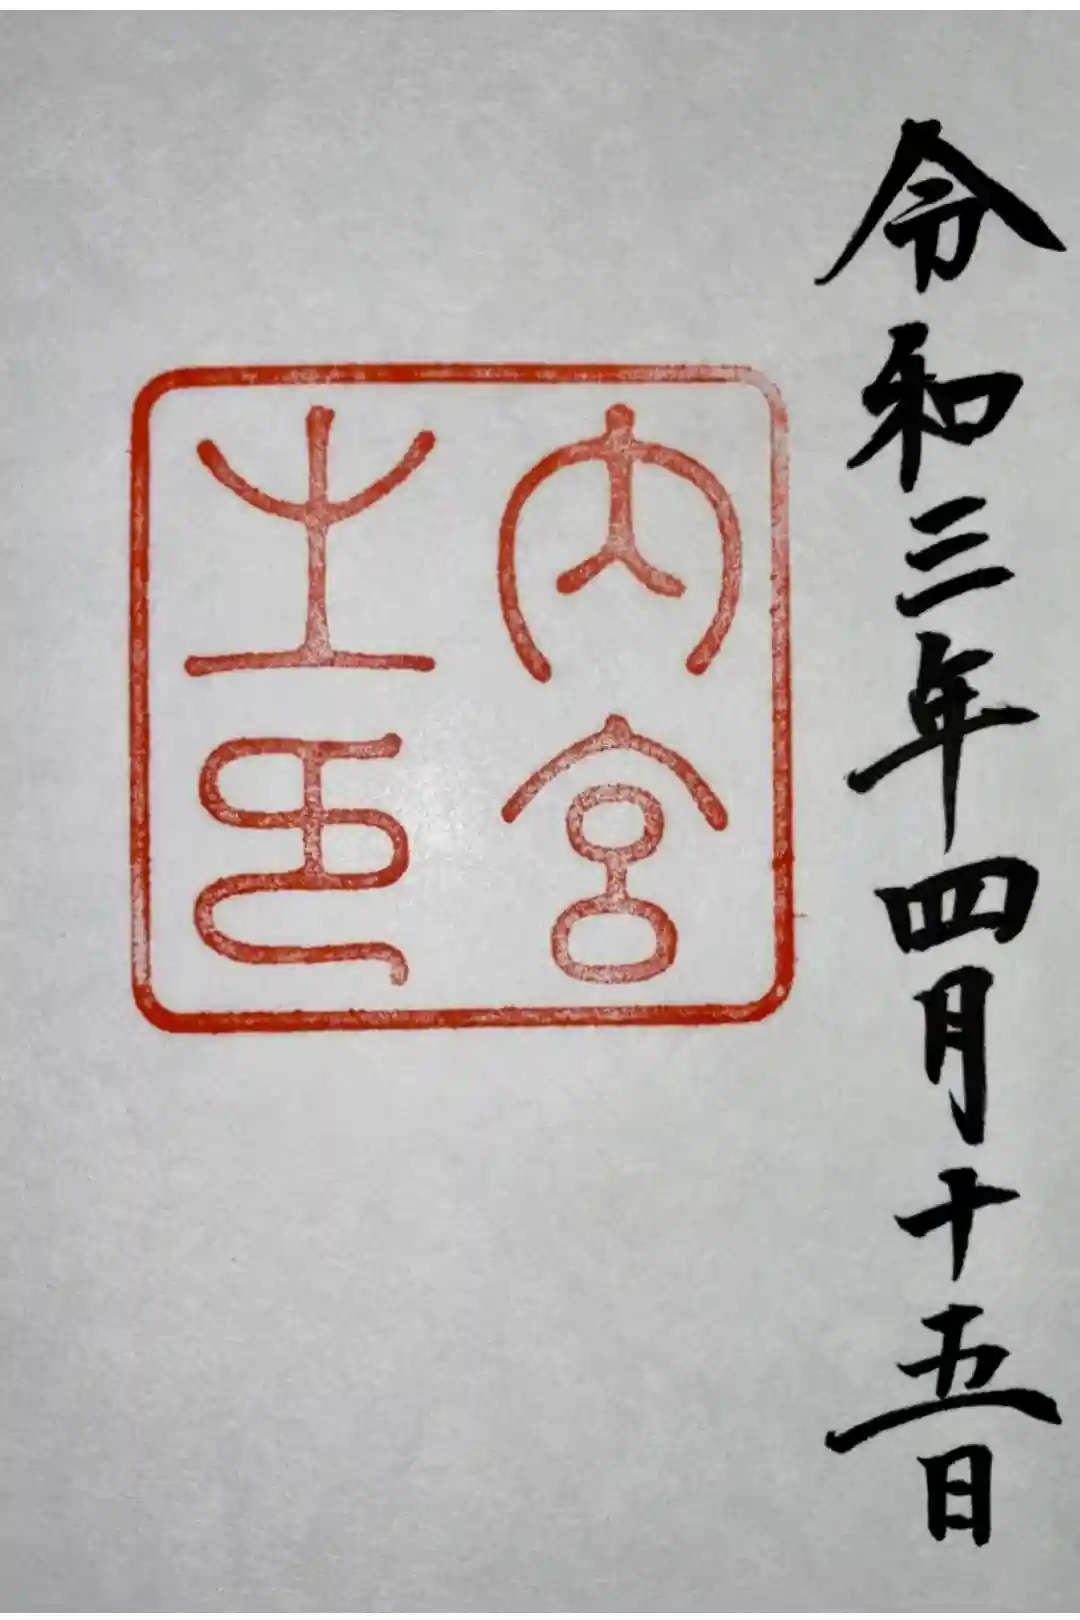 令和三年四月十五日
内宮
之印